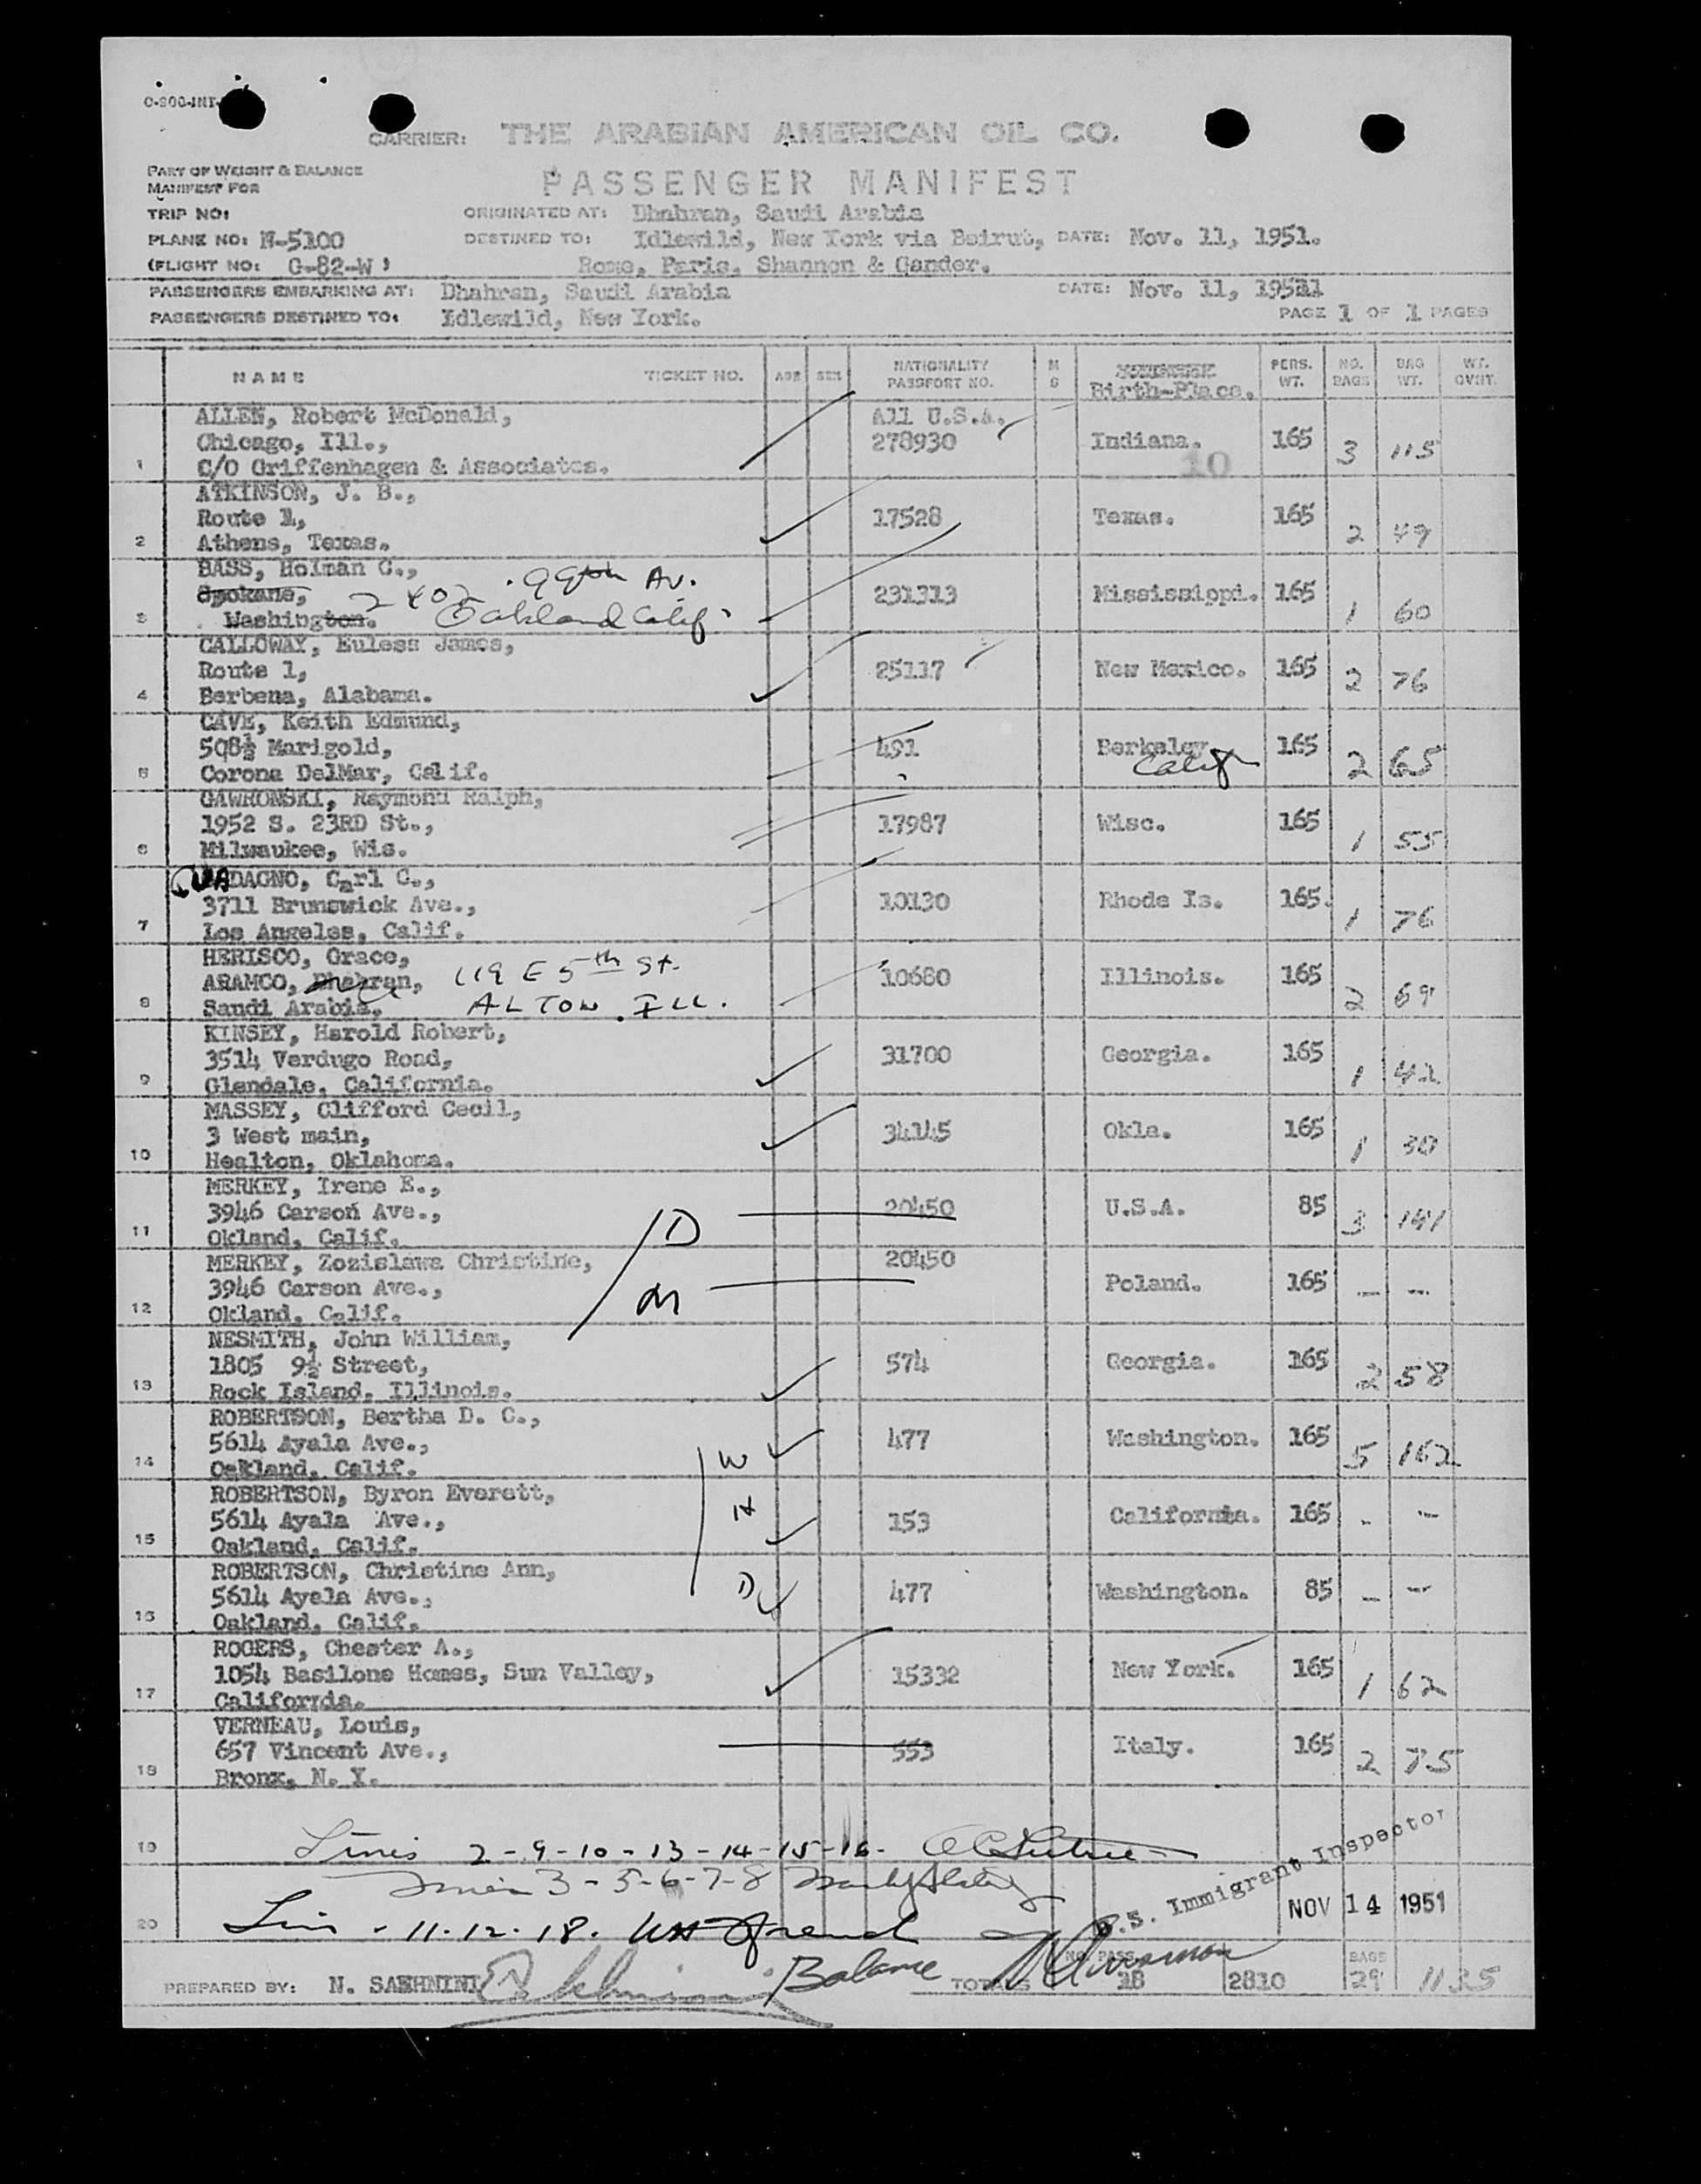 C-900-INT-
CARRIER: THE ARABIAN AMERICAN OIL CO.
PART OF WEIGHT & BALANCE
MANIFEST FOR
PASSENGER MANIFEST
TRIP NO:
ORIGINATED AT: Dhahran, Saudi Arabia
PLANE NO: N-5100
DESTINED TO: Idlewild, New York via Beirut, DATE: Nov. 11, 1951.
(FLIGHT NO: G-82-W) Rome, Paris, Shannon & Gander.
PASSENGERS EMBARKING AT: Dhahran, Saudi Arabia DATE: Nov. 11, 1951
PASSENGERS DESTINED TO: Idlewild, New York. PAGE 1 OF 1 PAGES
NAME TICKET NO. AGE SEX NATIONALITY PASSPORT NO. M S Birth-Place. PERS. WT. NO. BAGS BAG WT. WT. OVHT.
ALLEN, Robert McDonald, All U.S.A.
Chicago, Ill., 278930 Indiana. 165 3 115
1 C/O Griffenhagen & Associates. 10
ATKINSON, J. B.,
Route 1, 17528 Texas. 165
2 Athens, Texas. 2 49
BASS, Holman C., 99th Av.
Spokane, 2402 231313 Mississippi. 165
3 Washington. Oakland Calif 1 60
CALLOWAY, Euless James,
Route 1, 25117 New Mexico. 165 2 76
4 Berbena, Alabama.
CAVE, Keith Edmund,
508½ Marigold, 491 Berkeley 165
5 Corona DelMar, Calif. Calif 2 65
GAWRONSKI, Raymond Ralph,
1952 S. 23RD St., 17987 Wisc. 165
6 Milwaukee, Wis. 1 55
GUADAGNO, Carl C.,
3711 Brunswick Ave., 10130 Rhode Is. 165. 1 76
7 Los Angeles, Calif.
HERISCO, Grace,
ARAMCO, Dhahran, 119 E 5th St. 10680 Illinois. 165
8 Saudi Arabia. ALTON. ILL. 2 69
KINSEY, Harold Robert,
3514 Verdugo Road, 31700 Georgia. 165
9 Glendale, California. 1 42
MASSEY, Clifford Cecil,
3 West main, 34145 Okla. 165
10 Healton, Oklahoma. 1 30
MERKEY, Irene E.,
3946 Carson Ave., 20450 U.S.A. 85 3 141
11 Okland, Calif. D
MERKEY, Zozislawa Christine, 20450
3946 Carson Ave., Poland. 165 — —
12 Okland, Calif. M
NESMITH, John William,
1805 9½ Street, 574 Georgia. 165
13 Rock Island, Illinois. 2 58
ROBERTSON, Bertha D. C.,
5614 Ayala Ave., 477 Washington. 165
14 Oakland, Calif. W 5 162
ROBERTSON, Byron Everett,
5614 Ayala Ave., H 153 California. 165 - -
15 Oakland, Calif.
ROBERTSON, Christine Ann,
5614 Ayala Ave., D 477 Washington. 85 — —
16 Oakland, Calif.
ROGERS, Chester A.,
1054 Basilone Homes, Sun Valley, 15332 New York. 165 1 62
17 California.
VERNEAU, Louis,
657 Vincent Ave., 553 Italy. 165 2 75
18 Bronx, N. Y.
19 Lines 2-9-10-13-14-15-16-
U.S. Immigrant Inspector
3-5-6-7-8
NOV 14 1951
20 11.12.18.
PREPARED BY: N. SAHHNINI Balance TOTALS NO. PASS. 18 2810 BAGS 29 1135